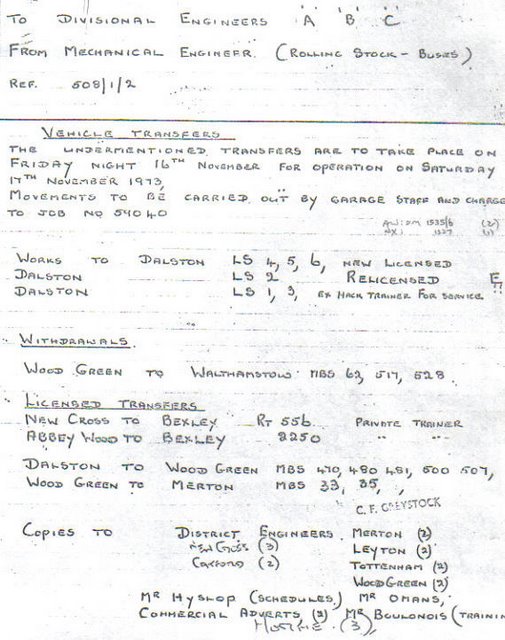 To Divisional Engineers "A" "B" "C"
From Mechanical Engineer. (Rolling Stock - Buses)
Ref. 508/1/2
Vehicle Transfers
The undermentioned transfers are to take place on
Friday night 16th November for operation on Saturday
17th November 1973,
Movements to be carried out by garage staff and charge
to Job No 54040
1535/6 (2)
1327 (1)
Works to Dalston LS 4, 5, 6, new licensed
Dalston LS 2 Relicensed E
Dalston LS 1, 3, ex hack trainer for service !!
Withdrawals
Wood Green to Walthamstow MBS 62, 517, 528.
Licensed Transfers
New Cross to Bexley RT 556 Private Trainer
Abbey Wood to Bexley 2250 " "
Dalston to Wood Green MBS 470, 480 481, 500 507,
Wood Green to Merton MBS 33, 35, ,
C. F. GREYSTOCK
Copies to District Engineers. Merton (2)
New Cross (3) Leyton (2)
Catford (2) Tottenham (2)
Wood Green (2)
Mr Hyslop (Schedules) Mr Omans,
Commercial Adverts, (3) Mr Boulonois (Trainin
(3)